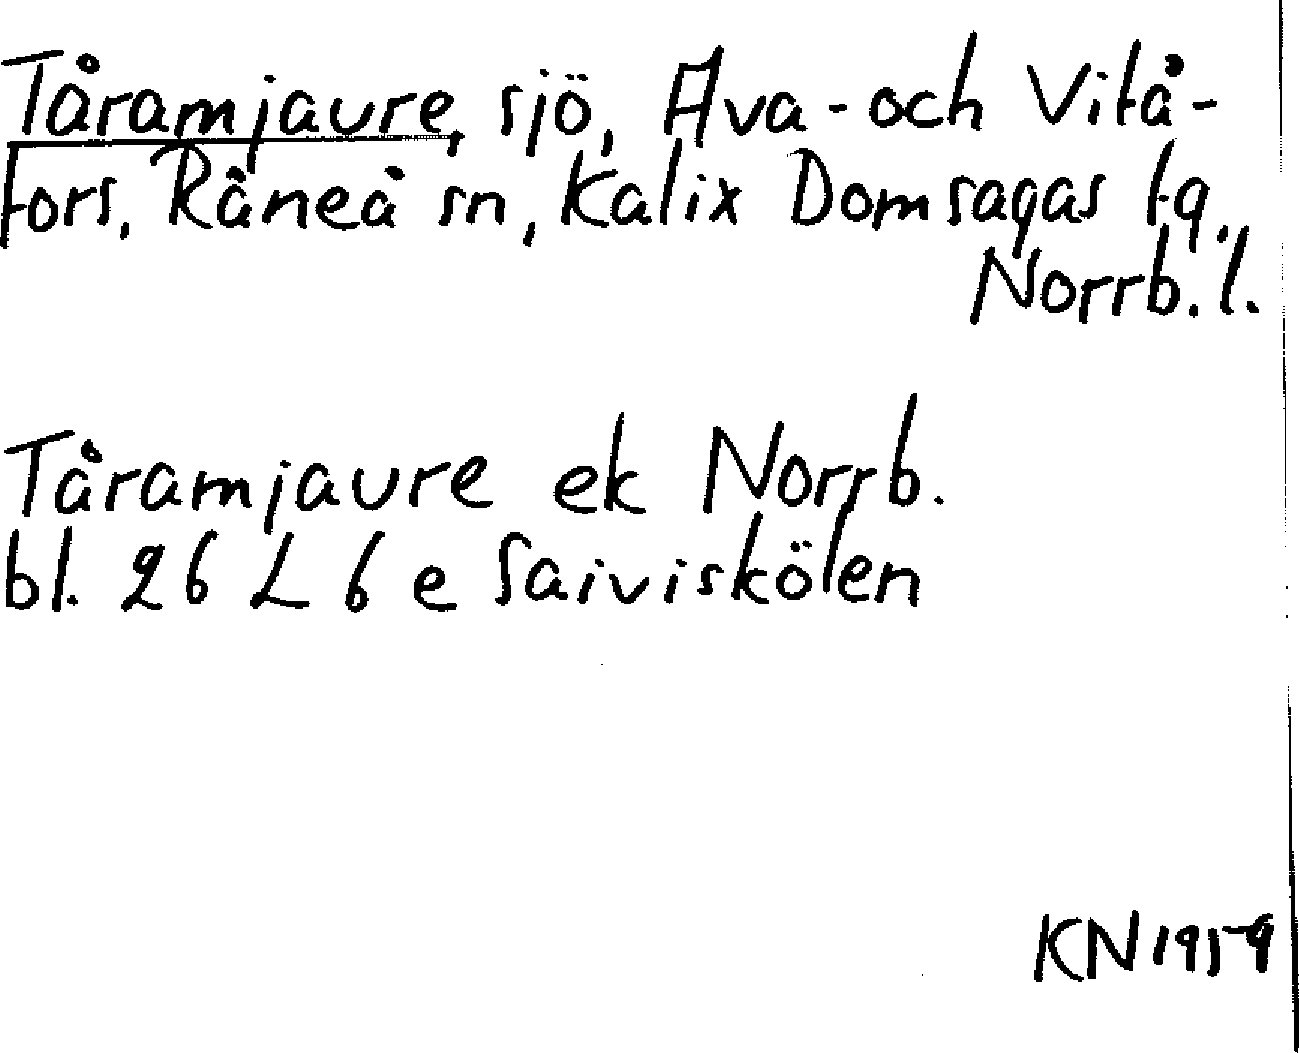 Tåramjaure, sjö, Ava- och Vitå-
fors, Råneå sn, Kalix Domsagas tg,
Norrb. l.
Tåramjaure ek Norrb.
bl. 26 L 6 e Saiviskölen
KN 1959